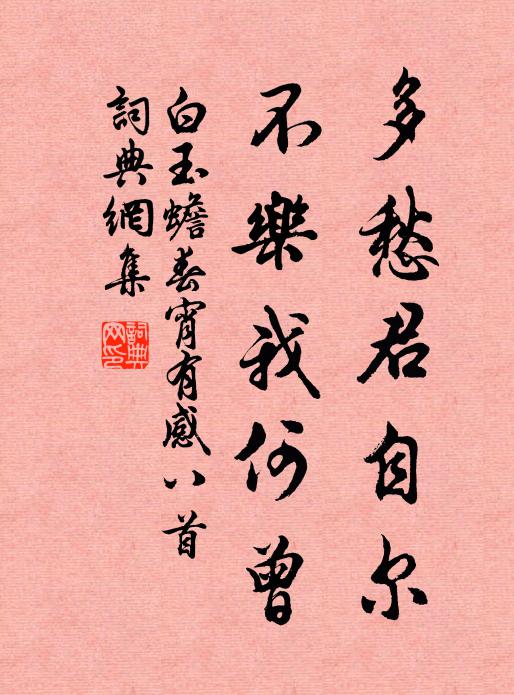 多愁君自尔
不樂我何曾
白玉蟾春宵有感八首
詞典網集
詞典网印